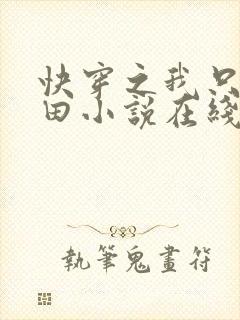 快穿之我只
田小説在綫
執筆鬼畫符